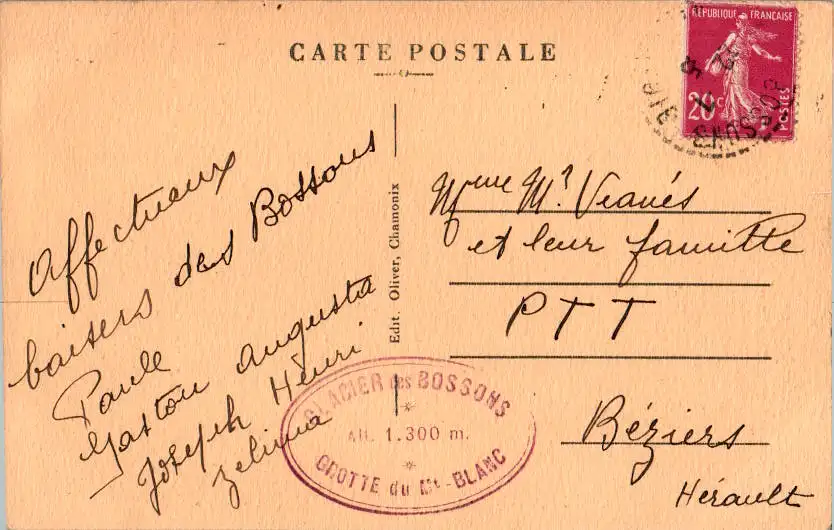 CARTE POSTALE
RÉPUBLIQUE FRANÇAISE
20c
POSTES
BOSSONS
Affectueux
baisers des Bossons
Paule
Gaston Augusta
Joseph Henri
Zelima
Edit. Oliver, Chamonix
Mme Mr Vianés
et leur famille
PTT
Béziers
Hérault
GLACIER des BOSSONS
Alt. 1.300 m.
GROTTE du Mt-BLANC